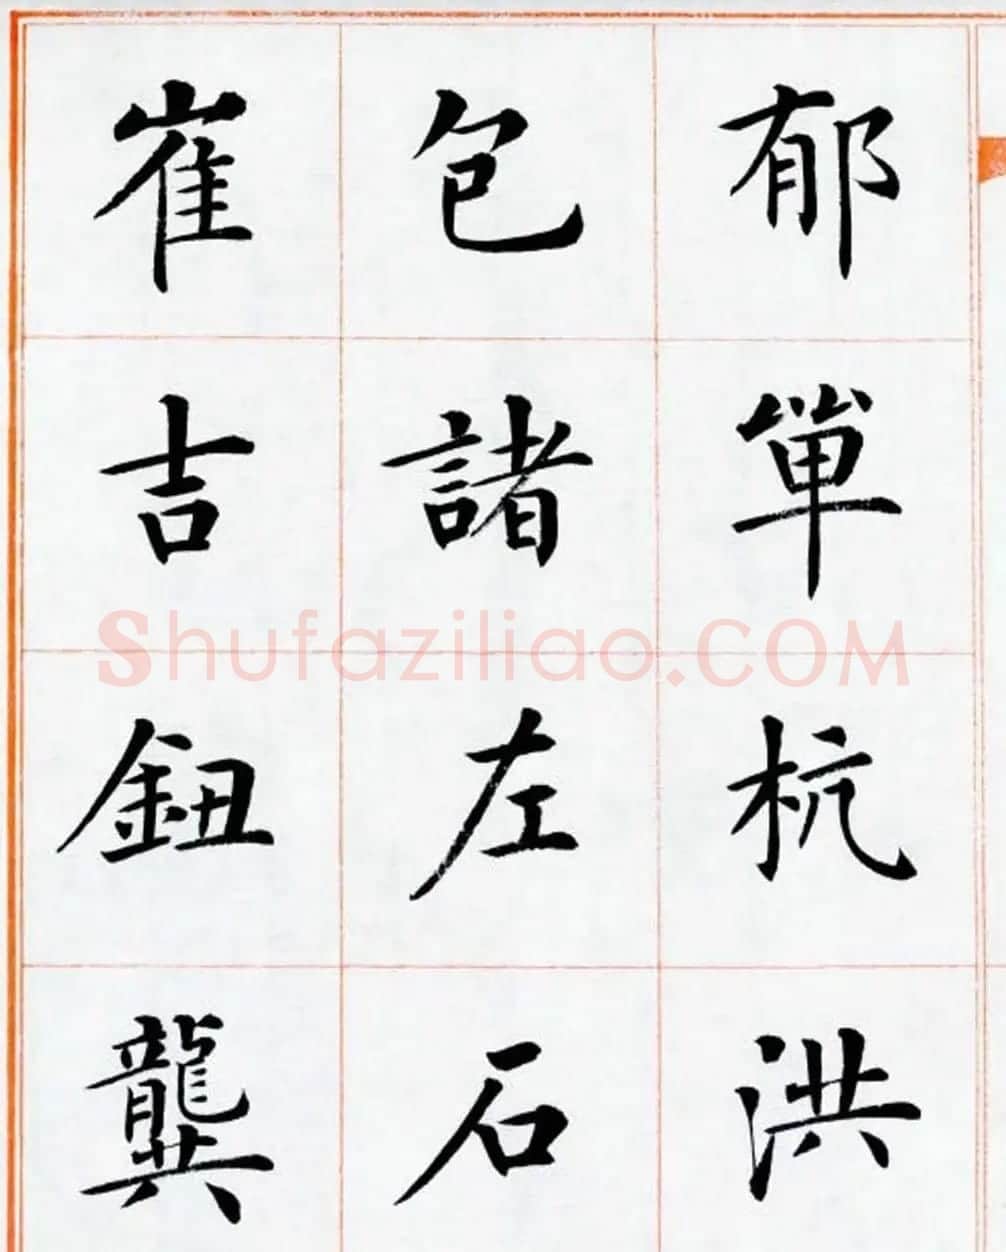 郁單杭洪
包諸左石
崔吉鈕龔
Shufaziliao.COM